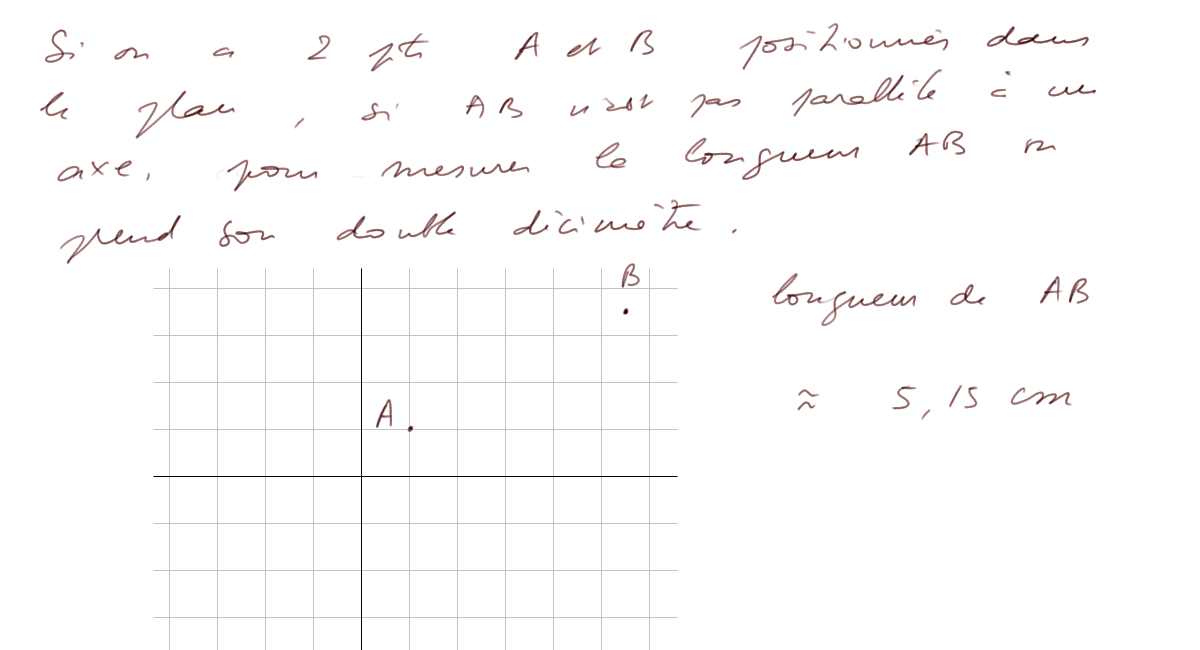 Si on a 2 pts A et B positionnés dans
le plan, si AB n'est pas parallèle à un
axe, pour mesurer la longueur AB on
prend son double décimètre.
B
longueur de AB
≈ 5,15 cm
A